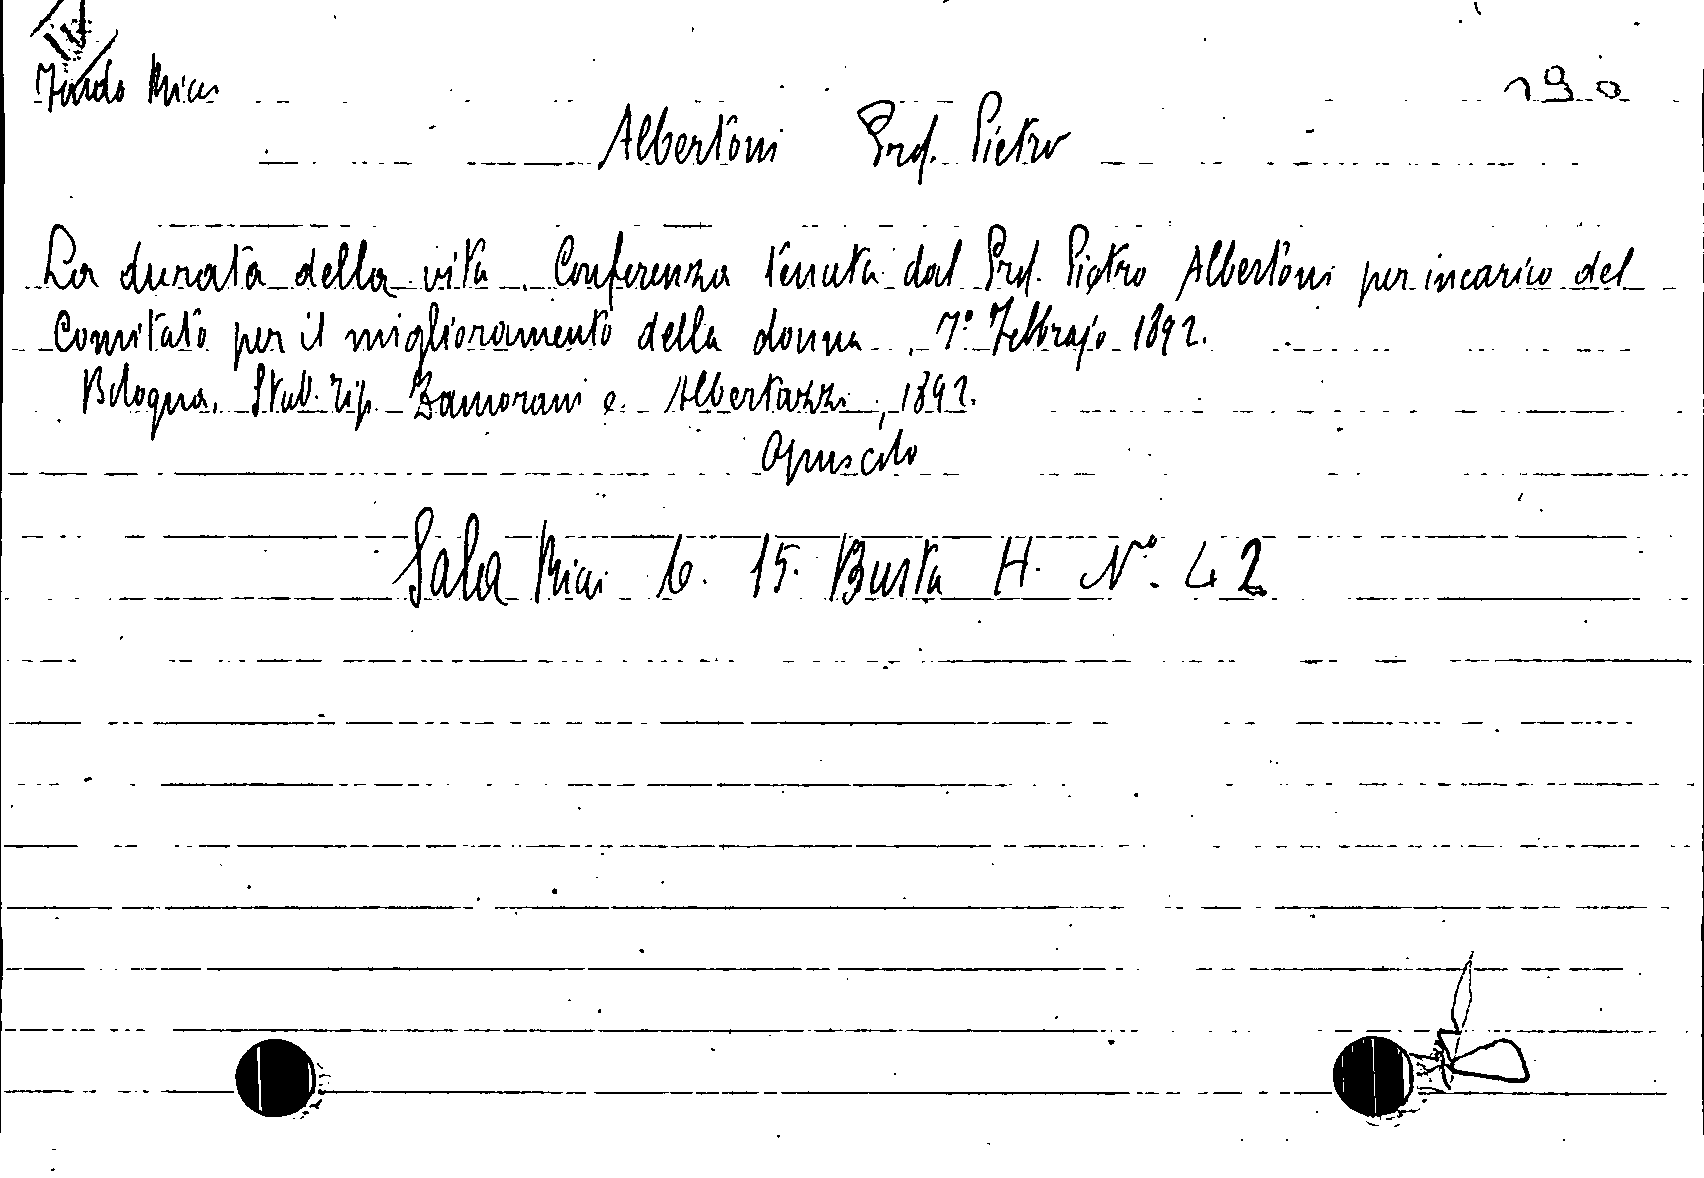 IV
Fondo Ricci
190
Albertoni Prof. Pietro
La durata della vita. Conferenza tenuta dal Prof. Pietro Albertoni per incarico del
Comitato per il miglioramento della donna, 7° Febbrajo 1892.
Bologna. Stab. Tip. Zamorani e Albertazzi, 1892.
Opuscolo
Sala 15. Busta H. N°. 42